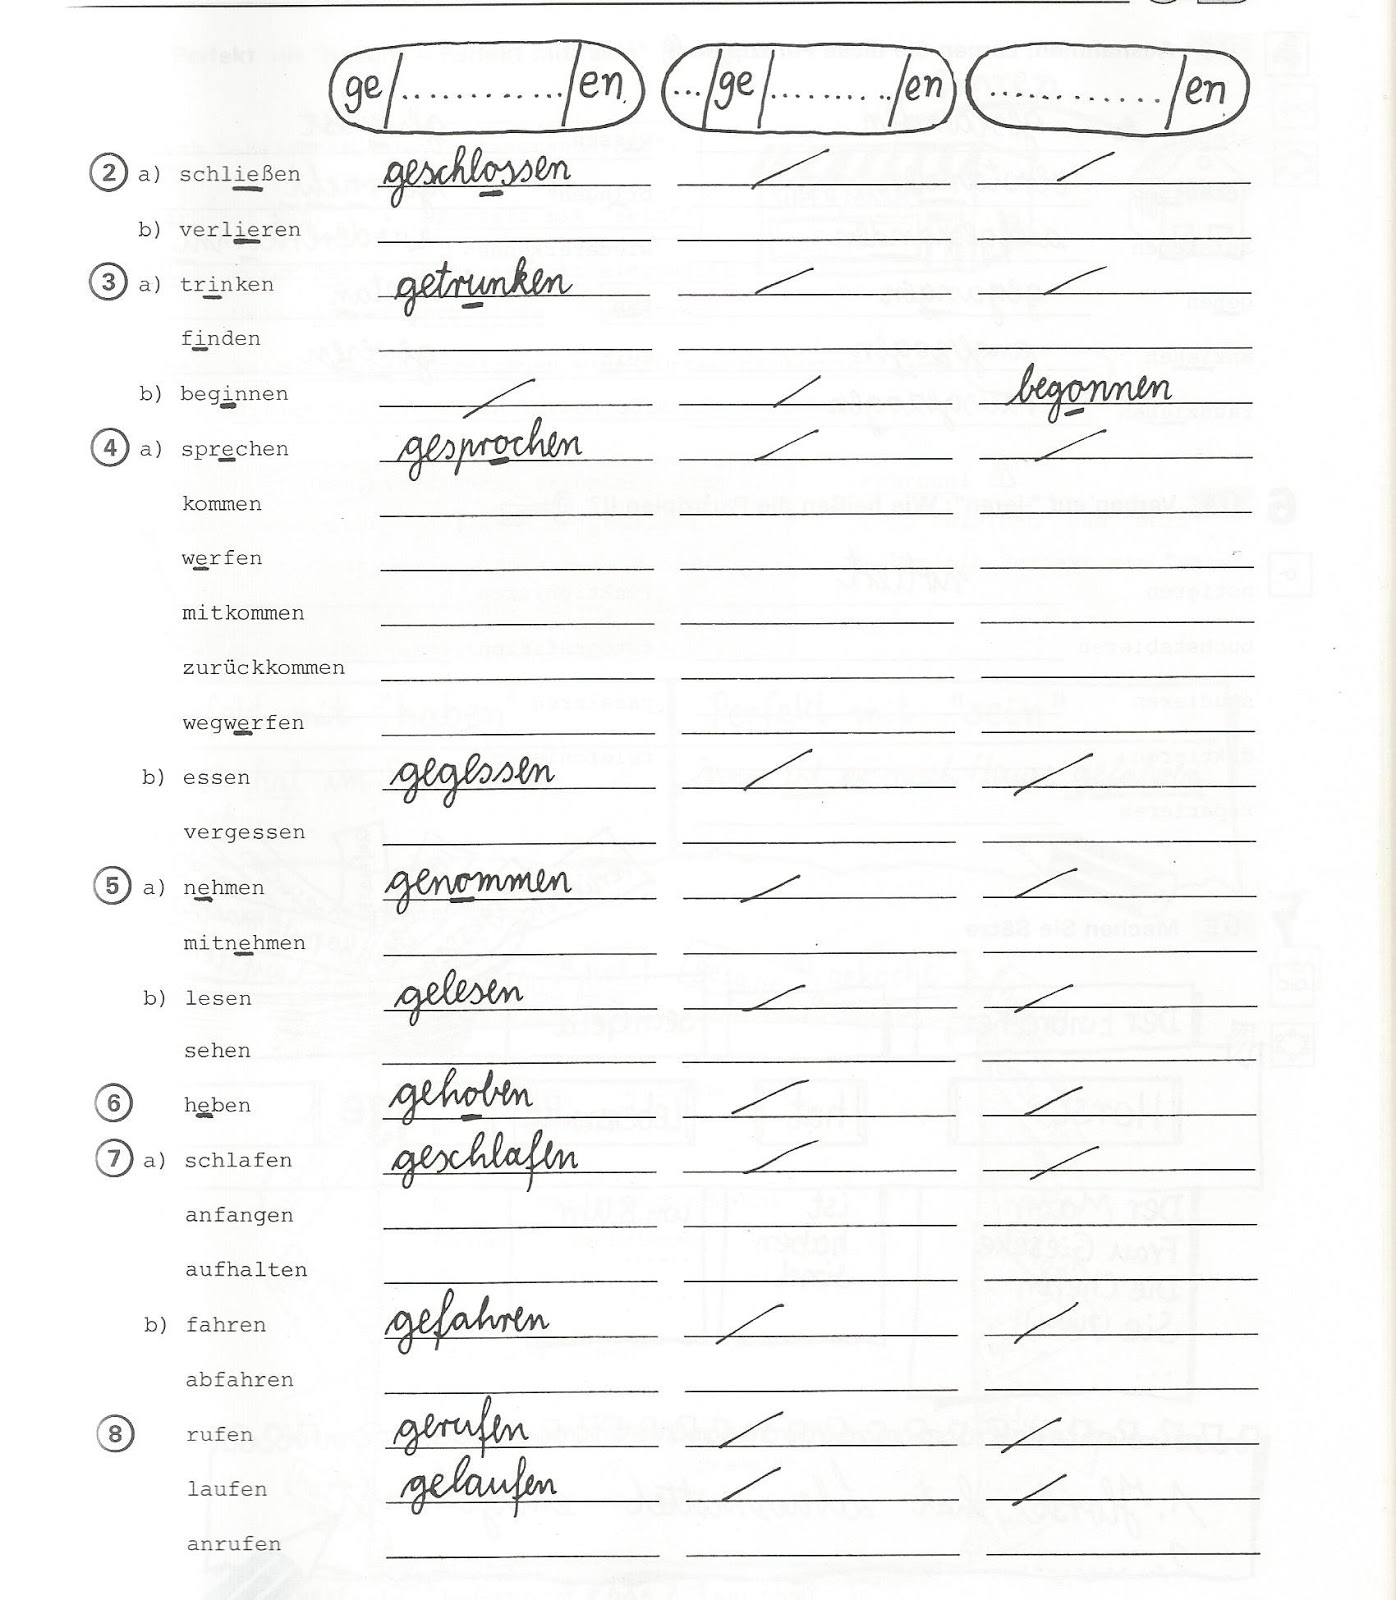 ge/............/en .../ge/........../en ............/en
2 a) schließen geschlossen
b) verlieren
3 a) trinken getrunken
finden
b) beginnen begonnen
4 a) sprechen gesprochen
kommen
werfen
mitkommen
zurückkommen
wegwerfen
b) essen gegessen
vergessen
5 a) nehmen genommen
mitnehmen
b) lesen gelesen
sehen
6 heben gehoben
7 a) schlafen geschlafen
anfangen
aufhalten
b) fahren gefahren
abfahren
8 rufen gerufen
laufen gelaufen
anrufen